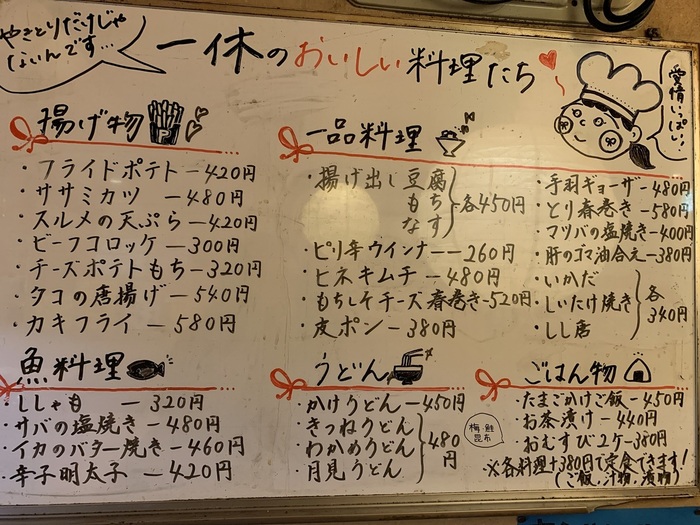 やきとりだけじゃ
ないんです…
一休のおいしい料理たち
愛情いっぱい!
揚げ物
・フライドポテト―420円
・ササミカツ ―480円
・スルメの天ぷら―420円
・ビーフコロッケ―300円
・チーズポテトもち―320円
・タコの唐揚げ―540円
・カキフライ―580円
一品料理
・揚げ出し豆腐
もち
なす
各450円
・ピリ辛ウインナー―260円
・ヒネキムチ―480円
・もちしそチーズ春巻き―520円
・皮ポン―380円
・手羽ギョーザ―480円
・とり春巻き―580円
・マツバの塩焼き―400円
・肝のゴマ油合え―380円
・いかだ
・しいたけ焼き
・しし唐
各
340円
魚料理
・ししゃも ―320円
・サバの塩焼き―480円
・イカのバター焼き―460円
・辛子明太子―420円
うどん
・かけうどん―450円
・きつねうどん
・わかめうどん
・月見うどん
480
円
ごはん物
・たまごかけご飯―450円
・お茶漬け―440円
梅・鮭
昆布
・おむすび2ケ―380円
※各料理+380円で定食できます!
(ご飯,汁物,漬物)